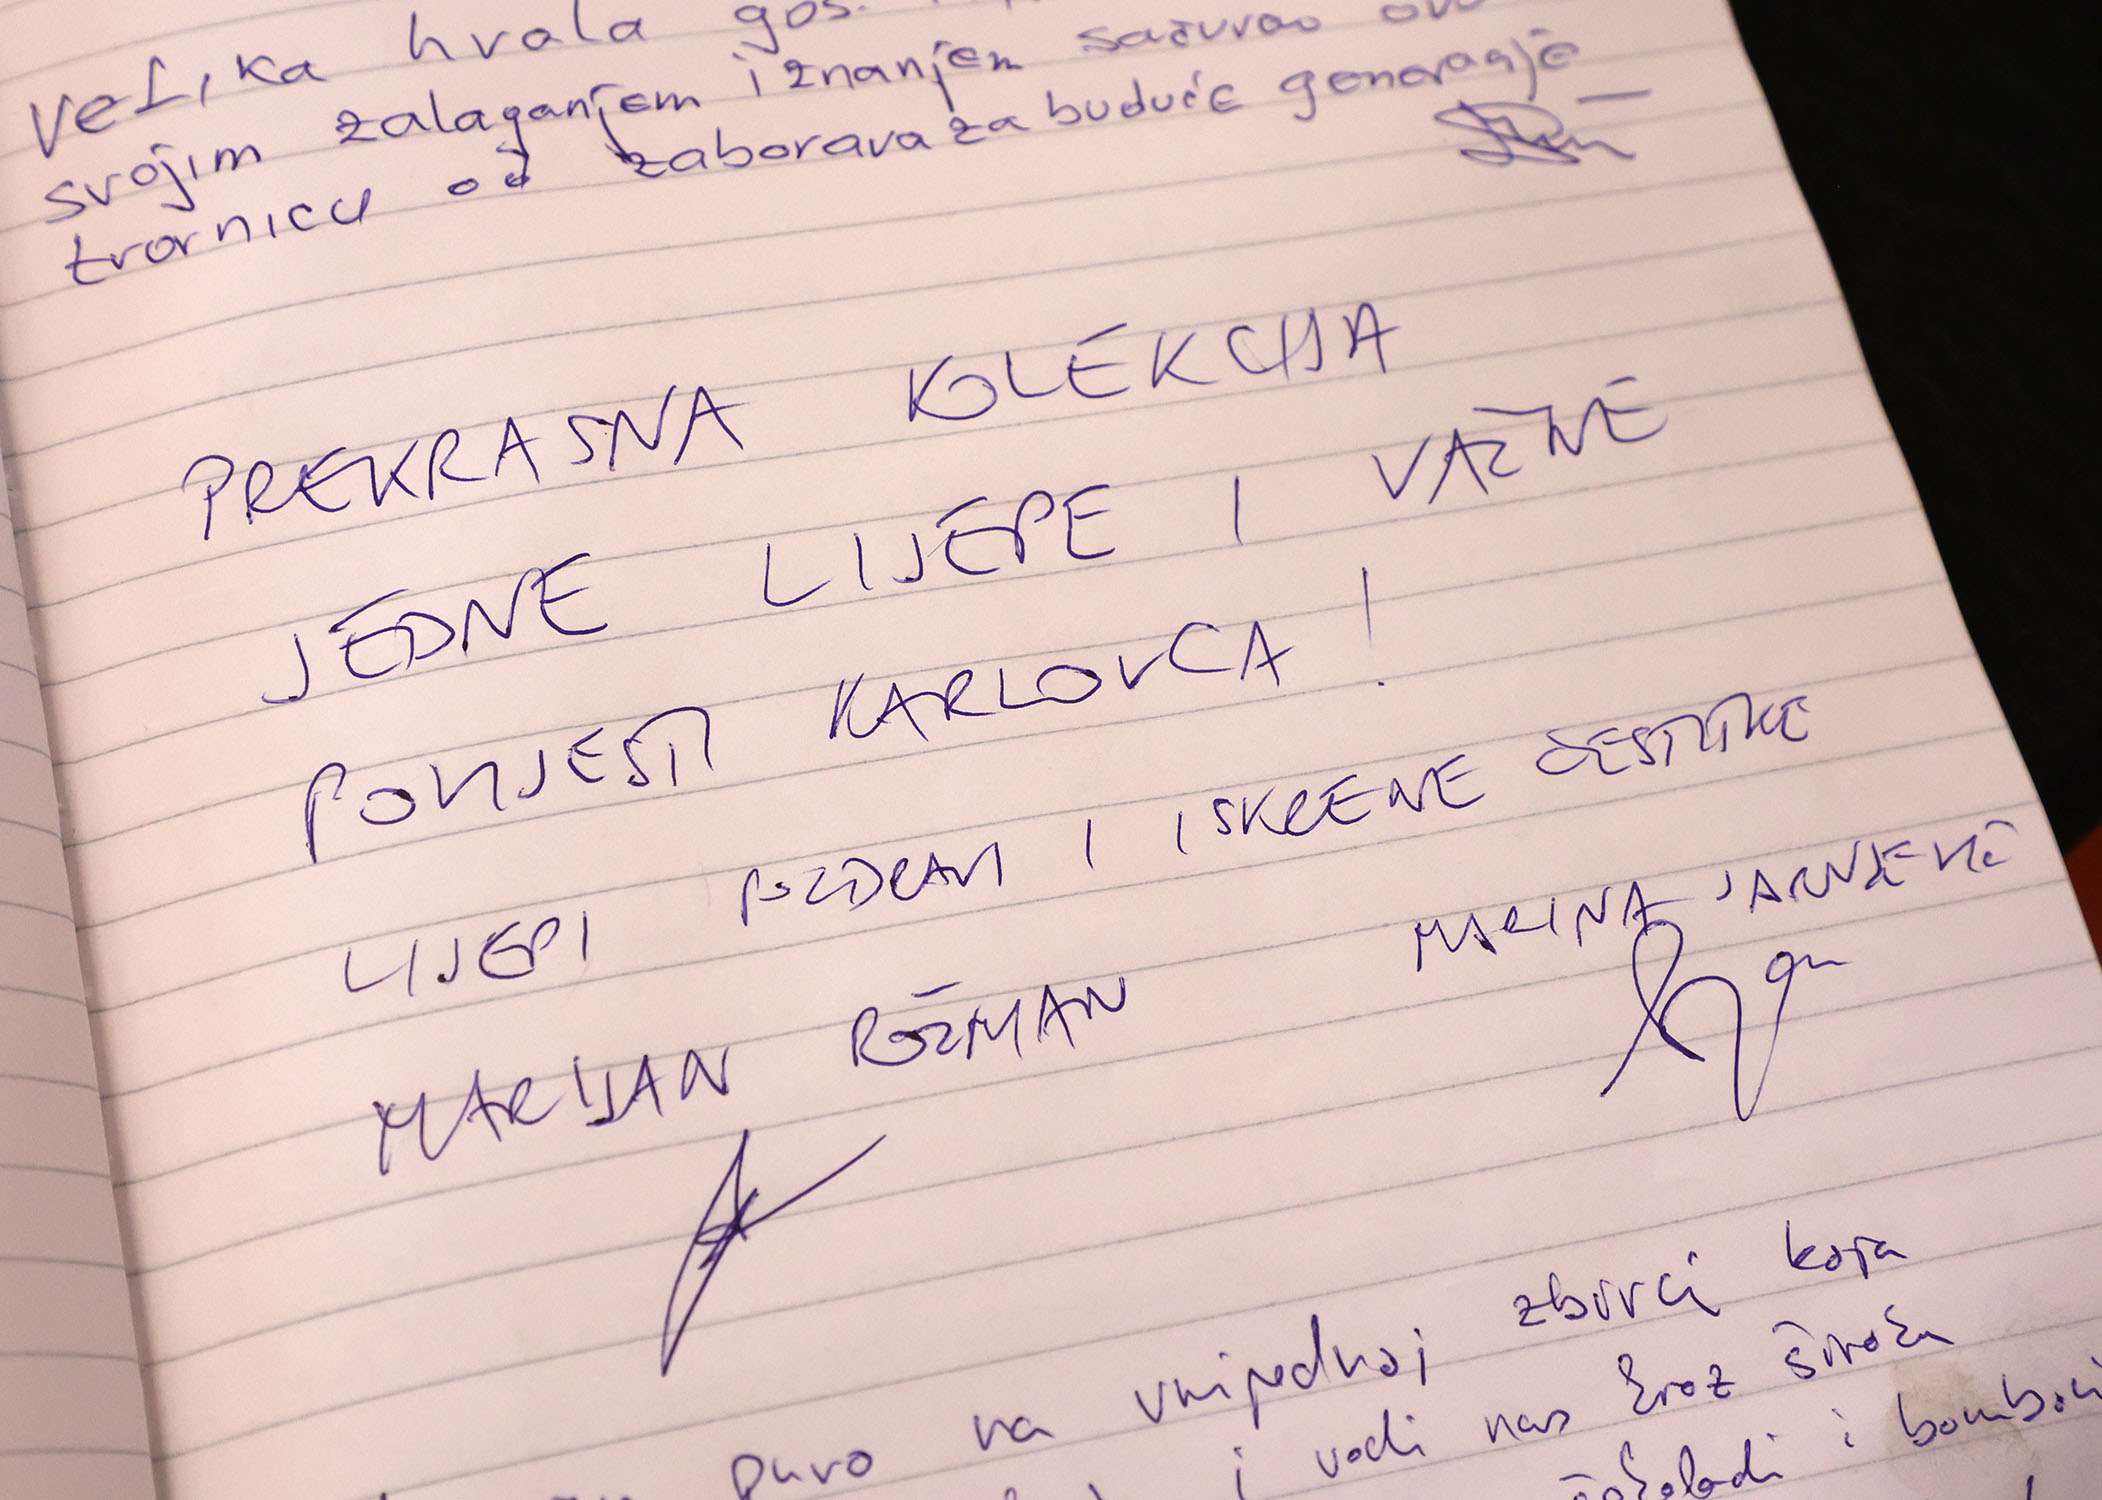 Velika hvala gos.
svojim zalaganjem i znanjem sačuvao ovu
tvornicu od zaborava za buduće generacije
PREKRASNA KOLEKCIJA
JEDNE LIJEPE I VAŽNE
POVIJESTI KARLOVCA!
LIJEPI POZDRAVI I ISKRENE ČESTITKE
MARIJAN ROŽMAN
MARINA JARNJEVIĆ
puno na vrijednoj zbirci koja
i vodi nas kroz široku
čokoladi i bomboni